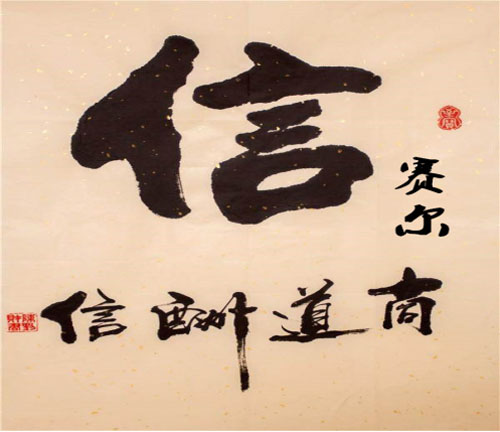 信
赛尔
商道酬信